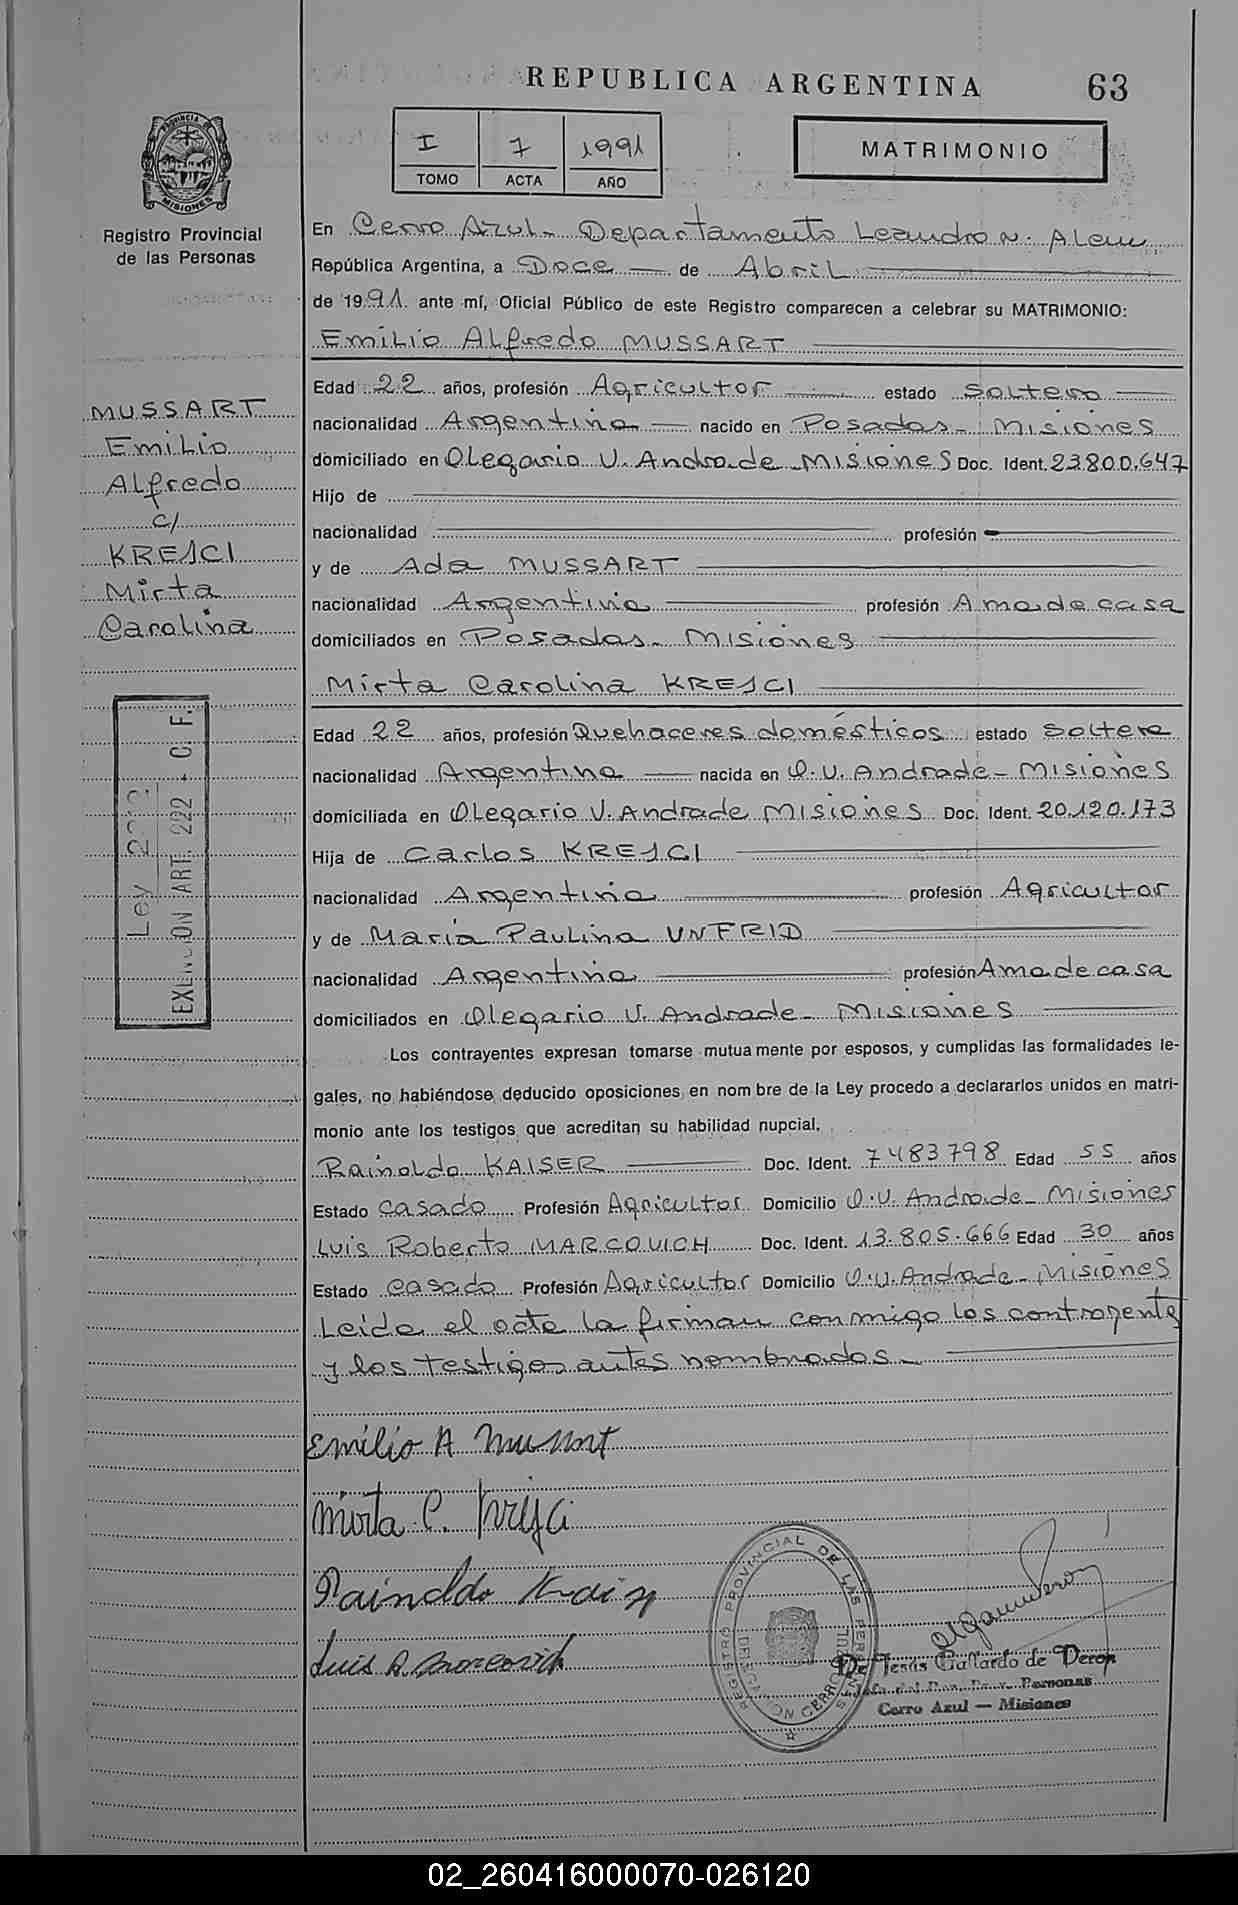 REPUBLICA ARGENTINA
63
PROVINCIA
MISIONES
Registro Provincial
de las Personas
I 7 1991
TOMO ACTA AÑO
MATRIMONIO
En Cerro Azul - Departamento Leandro N. Alem
República Argentina, a Doce de Abril
de 1991 ante mí, Oficial Público de este Registro comparecen a celebrar su MATRIMONIO:
Emilio Alfredo MUSSART
MUSSART
Emilio
Alfredo
c/
KRESCI
Mirta
Carolina
Edad 22 años, profesión Agricultor estado Soltero
nacionalidad Argentina nacido en Posadas - Misiones
domiciliado en Olegario V. Andrade Misiones Doc. Ident. 23.800.647
Hijo de
nacionalidad profesión
y de Ada MUSSART
nacionalidad Argentina profesión Ama de casa
domiciliados en Posadas - Misiones
Mirta Carolina KRESCI
Edad 22 años, profesión Quehaceres domésticos estado Soltera
nacionalidad Argentina nacida en O.V. Andrade - Misiones
domiciliada en Olegario V. Andrade Misiones Doc. Ident. 20.120.173
Hija de Carlos KRESCI
nacionalidad Argentina profesión Agricultor
y de María Paulina UNFRID
nacionalidad Argentina profesión Ama de casa
domiciliados en Olegario V. Andrade - Misiones
Ley 2202
EXENCION ART. 222 - C.F.
Los contrayentes expresan tomarse mutuamente por esposos, y cumplidas las formalidades le-
gales, no habiéndose deducido oposiciones en nombre de la Ley procedo a declararlos unidos en matri-
monio ante los testigos que acreditan su habilidad nupcial.
Rainoldo KAISER Doc. Ident. 7483798 Edad 55 años
Estado Casado Profesión Agricultor Domicilio O.V. Andrade - Misiones
Luis Roberto MARCOVICH Doc. Ident. 13.805.666 Edad 30 años
Estado Casado Profesión Agricultor Domicilio O.V. Andrade - Misiones
Leida el acta la firman conmigo los contrayente
y los testigos antes nombrados -
Emilio A Mussart
Mirta C.
Rainoldo
Luis R. Marcovich
REGISTRO PROVINCIAL DE LAS PERSONAS
CERRO AZUL
De Jesús Gallardo de Peron
Cerro Azul — Misiones
02_260416000070-026120